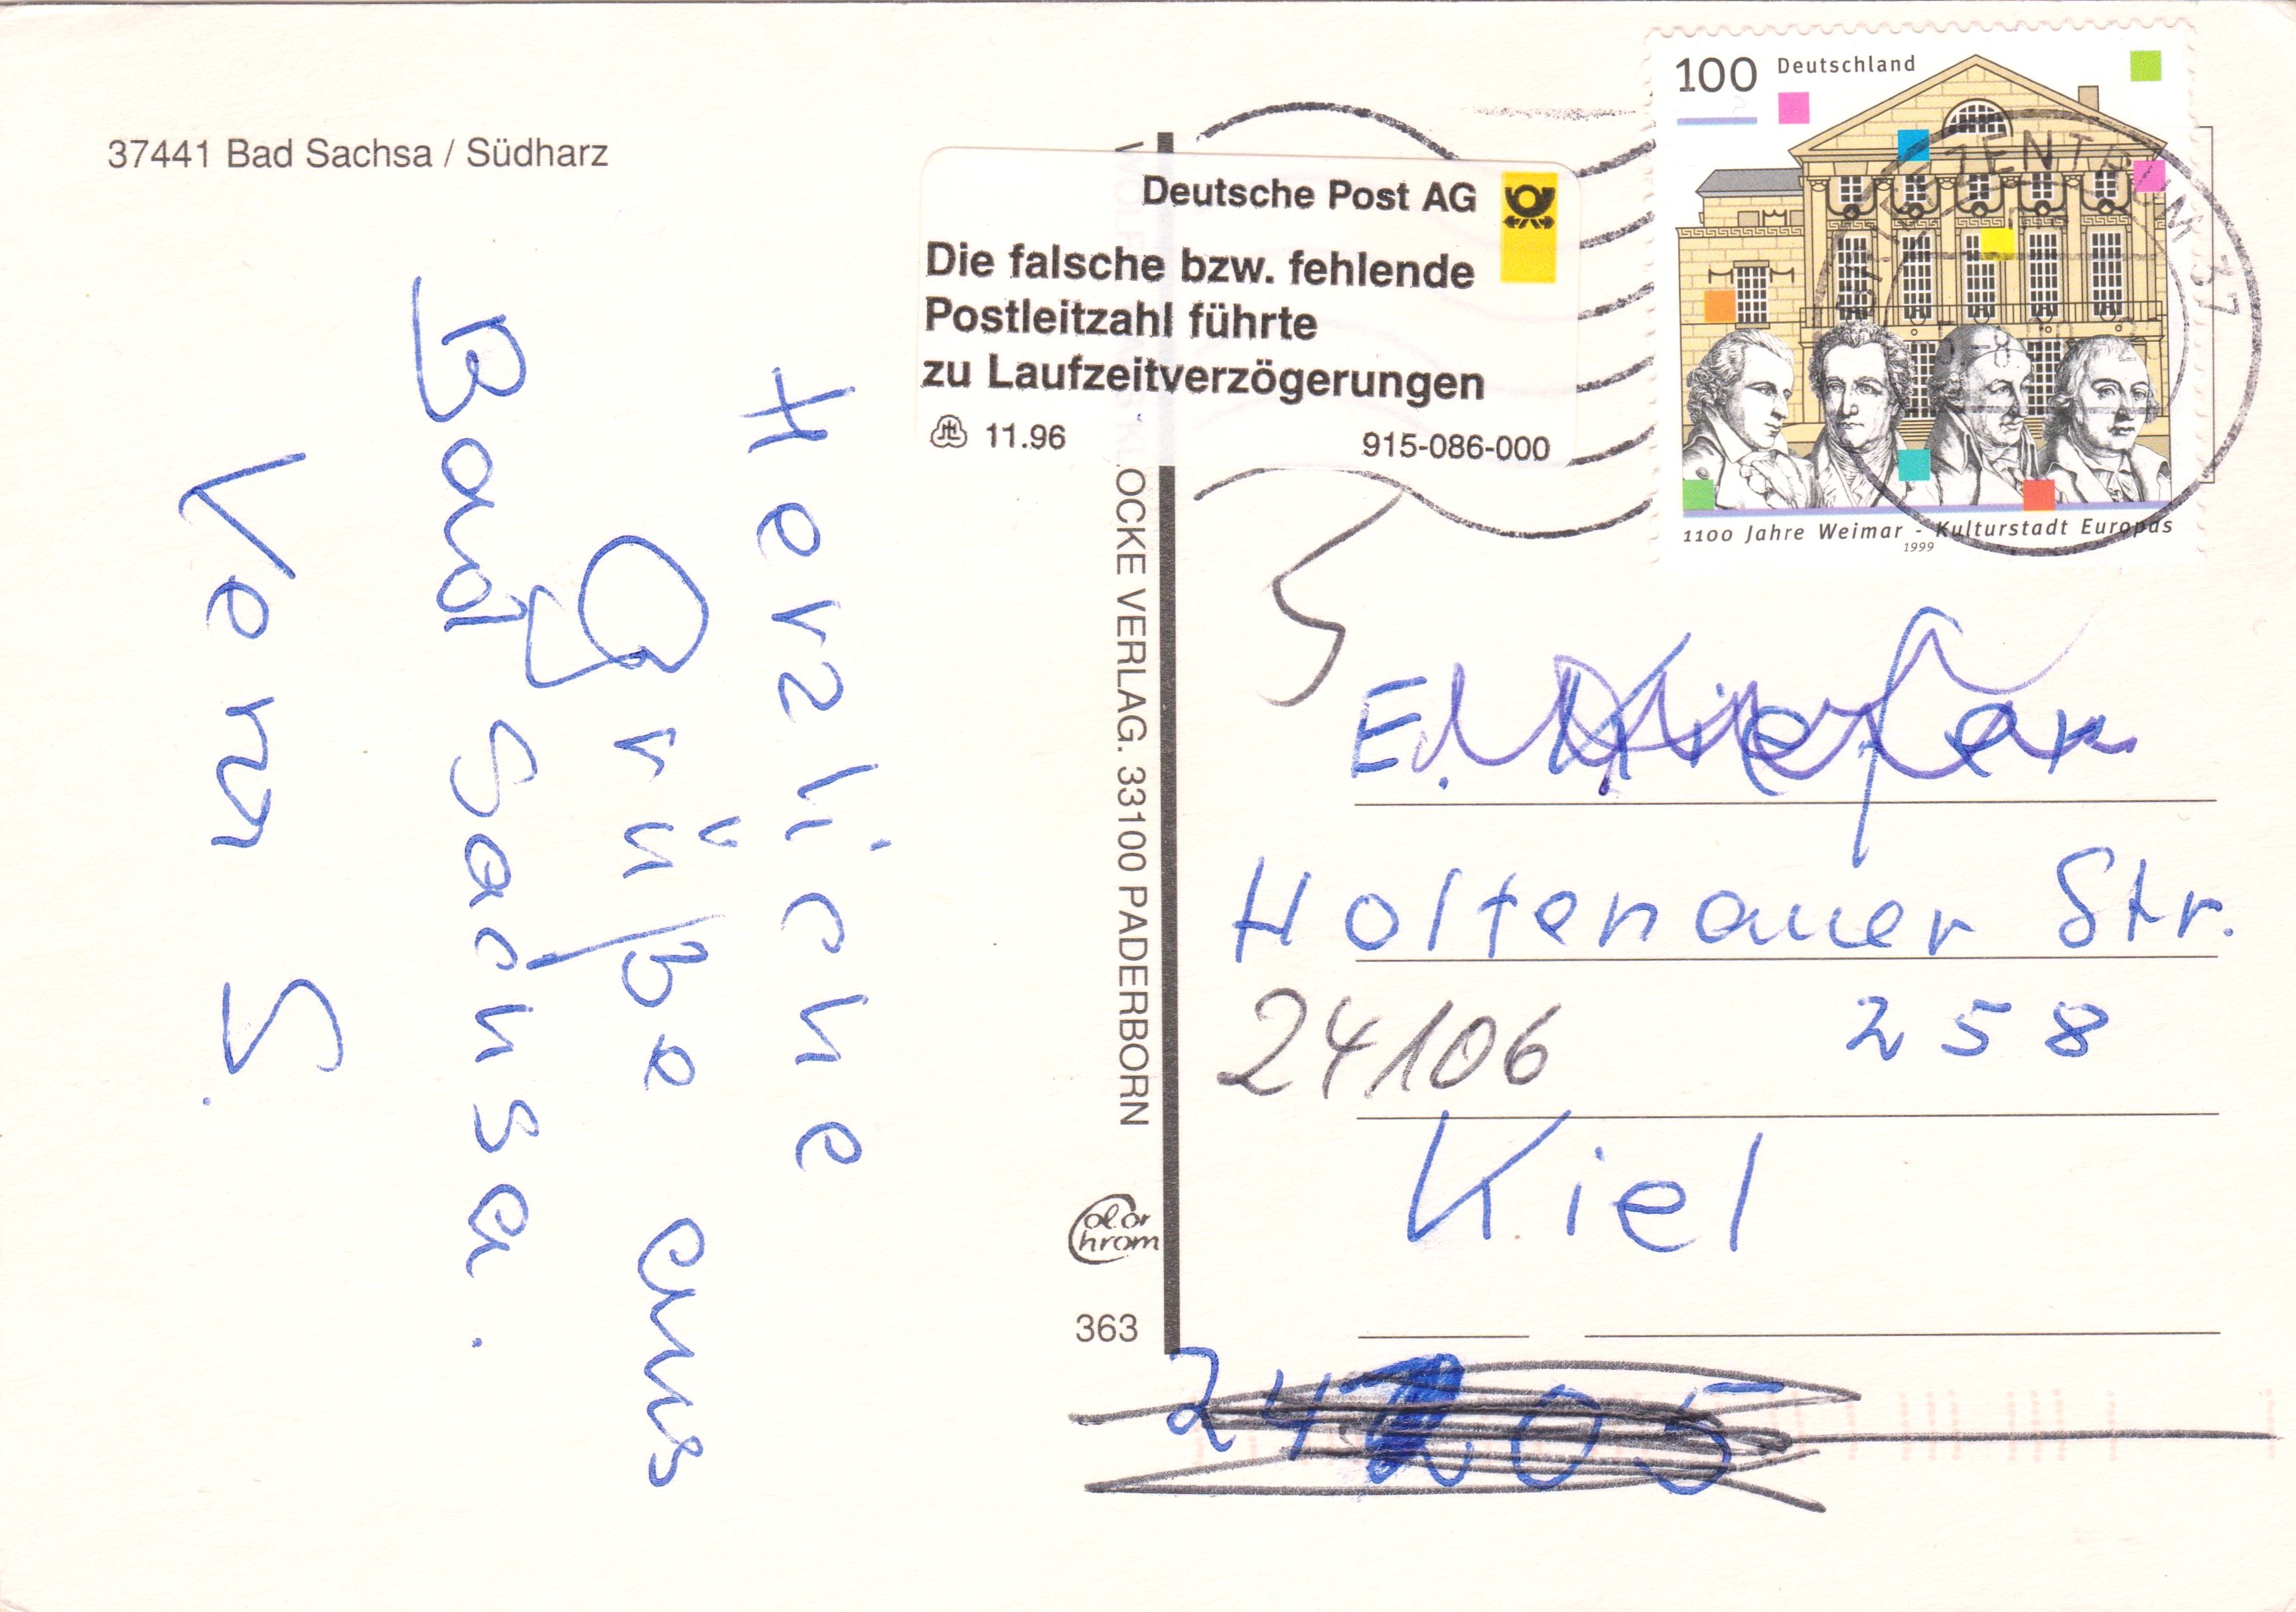 37441 Bad Sachsa / Südharz
Herzliche
Grüße aus
Bad Sachsa.
Vern S.
OCKE VERLAG. 33100 PADERBORN
Color
Chrom
363
Deutsche Post AG
Die falsche bzw. fehlende
Postleitzahl führte
zu Laufzeitverzögerungen
11.96 915-086-000
100 Deutschland
1100 Jahre Weimar - Kulturstadt Europas
1999
BRIEFZENTRUM 37
E.
Holtenauer Str.
24106 258
Kiel